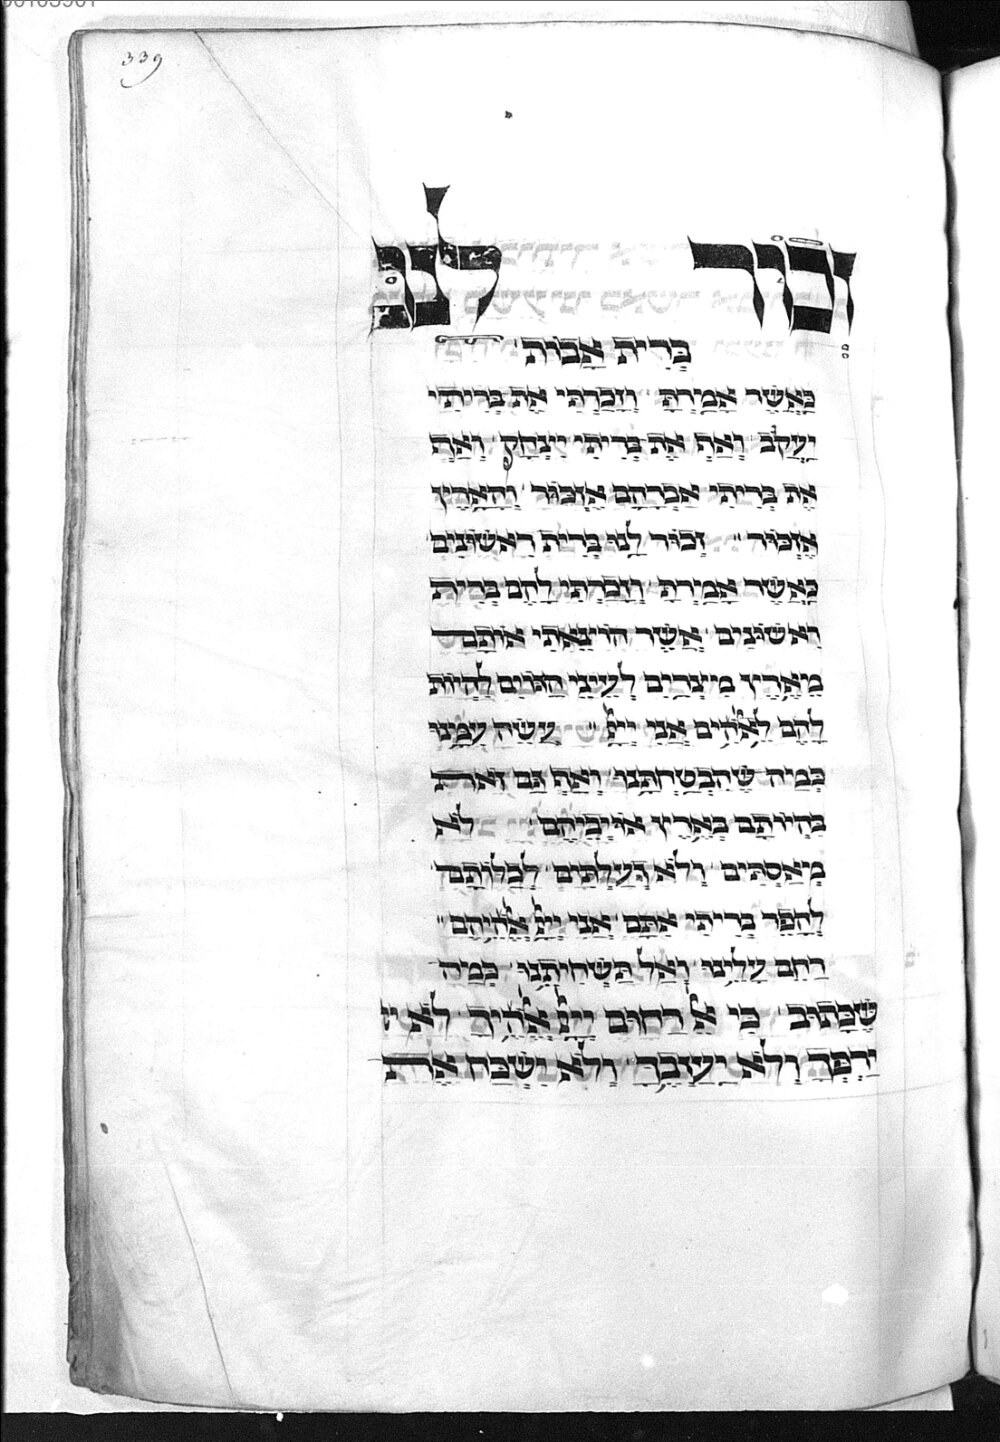 339
זכור לנו
בְּרִית אָבוֹת
כַּאֲשֶׁר אָמַרְתָּ וְזָכַרְתִּי אֶת בְּרִיתִי
יַעֲקֹב וְאַף אֶת בְּרִיתִי יִצְחָק וְאַף
אֶת בְּרִיתִי אַבְרָהָם אֶזְכּוֹר וְהָאָרֶץ
אֶזְכּוֹר זְכוֹר לָנוּ בְּרִית רִאשׁוֹנִים
כַּאֲשֶׁר אָמַרְתָּ וְזָכַרְתִּי לָהֶם בְּרִית
רִאשׁוֹנִים אֲשֶׁר הוֹצֵאתִי אוֹתָם
מֵאֶרֶץ מִצְרַיִם לְעֵינֵי הַגּוֹיִם לִהְיוֹת
לָהֶם לֵאלֹהִים אֲנִי יְיָ עֲשֵׂה עִמָּנוּ
כְּמָה שֶׁהִבְטַחְתָּנוּ וְאַף גַּם זֹאת
בִּהְיוֹתָם בְּאֶרֶץ אוֹיְבֵיהֶם לֹא
מְאַסְתִּים וְלֹא גְעַלְתִּים לְכַלּוֹתָם
לְהָפֵר בְּרִיתִי אִתָּם אֲנִי יְיָ אֱלֹהֵיהֶם
רַחֵם עָלֵינוּ וְאַל תַּשְׁחִיתֵנוּ כְּמָה
שֶׁכָּתוּב כִּי אֵל רַחוּם יְיָ אֱלֹהֶיךָ לֹא
יַרְפְּךָ וְלֹא יַעַזָבְךָ וְלֹא יִשְׁכַּח אֶת